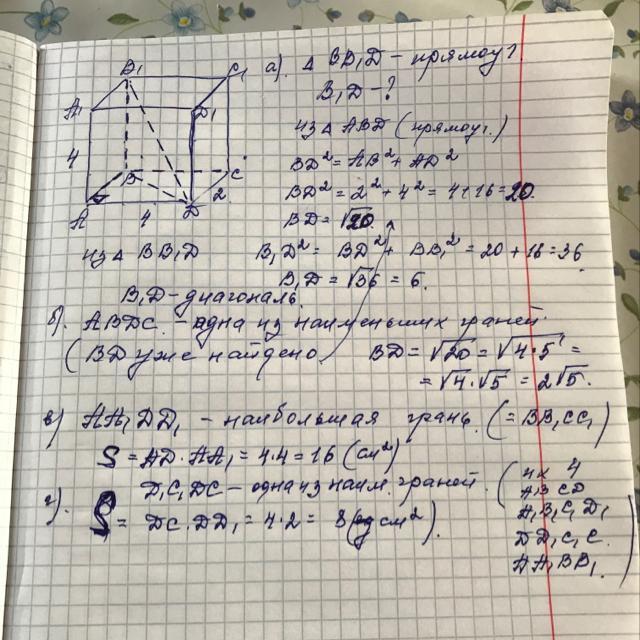 B₁ C₁ а). Δ BB₁D – прямоуг.
A₁ D₁ B₁D – ?
из Δ ABD (прямоуг.)
4 BD² = AB² + AD²
B C BD² = 2² + 4² = 4+16 = 20.
A 4 D 2 BD = √20.
из Δ BB₁D B₁D² = BD² + BB₁² = 20 + 16 = 36
B₁D = √36 = 6.
B₁D – диагональ.
б). ABDC. – одна из наименьших граней.
(BD уже найдено BD = √20 = √4·5 =
= √4 · √5 = 2√5.
в) AA₁DD₁ – наибольшая грань. (= BB₁CC₁)
S = AD · AA₁ = 4·4 = 16 (см²)
D₁C₁DC – одна из наим. граней. (их 4
г). ABCD
S = DC · DD₁ = 4·2 = 8 (см²). A₁B₁C₁D₁
DD₁C₁C.
AA₁BB₁.)